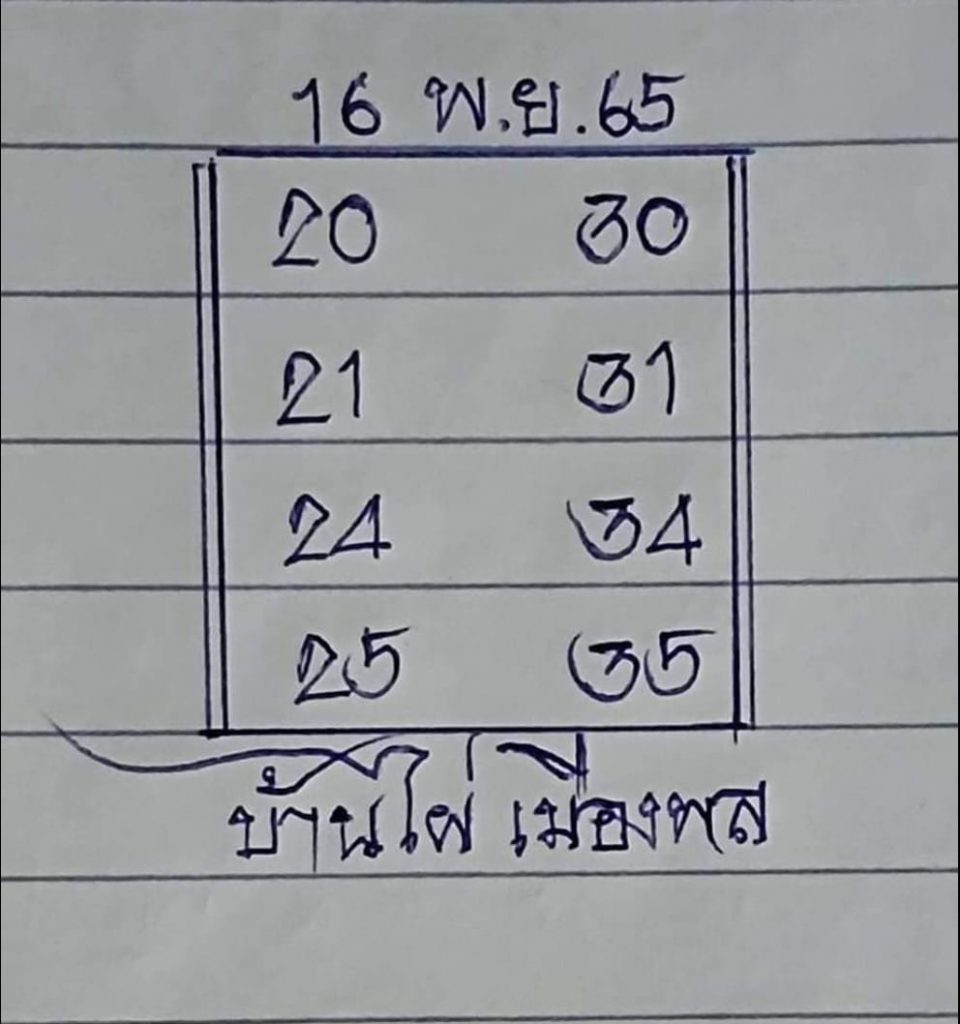 16 พ.ย.65
20 30
21 31
24 34
25 35
บ้านไผ่ เมืองพล